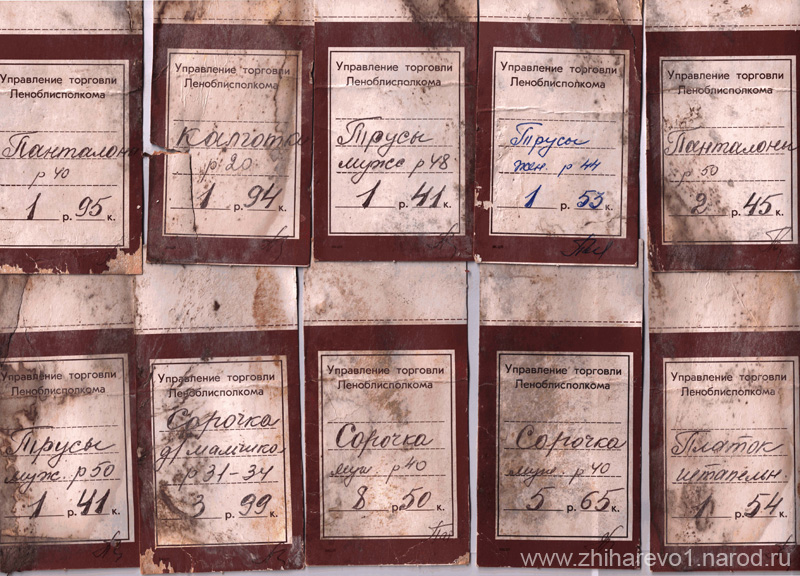 Управление торговли
Леноблисполкома
Панталоны
р 40
1 р. 95 к.
Управление торговли
Леноблисполкома
Колготки
р 20
1 р. 94 к.
Управление торговли
Леноблисполкома
Трусы
мужс р 48
1 р. 41 к.
Управление торговли
Леноблисполкома
Трусы
жен. р 44
1 р. 53 к.
Управление торговли
Леноблисполкома
Панталоны
р 50
2 р. 45 к.
Управление торговли
Леноблисполкома
Трусы
муж. р 50
1 р. 41 к.
Управление торговли
Леноблисполкома
Сорочка
д/мальчика
р 31-34
3 р. 99 к.
Управление торговли
Леноблисполкома
Сорочка
муж. р 40
8 р. 50 к.
Управление торговли
Леноблисполкома
Сорочка
муж. р 40
5 р. 65 к.
Управление торговли
Леноблисполкома
Платок
штапельн.
1 р. 54 к.
www.zhiharevo1.narod.ru